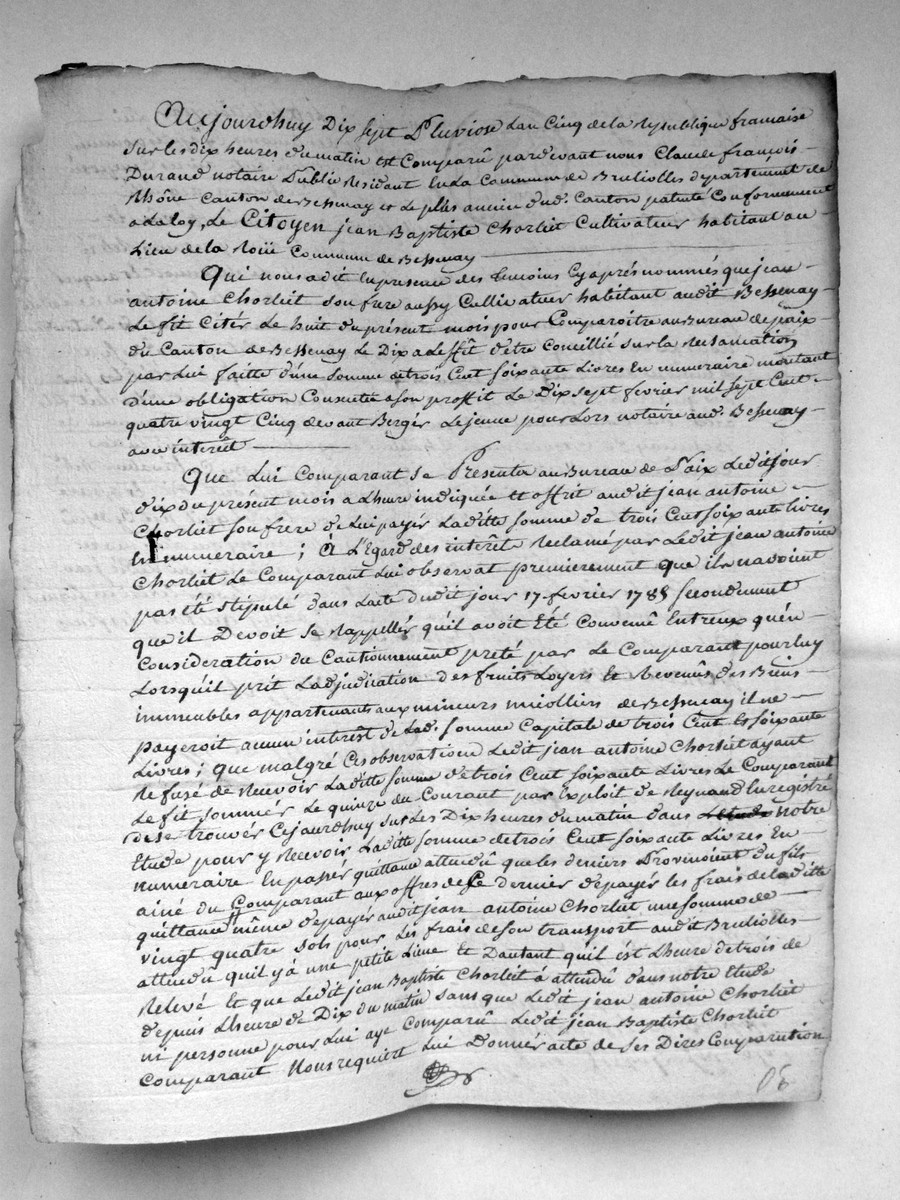 Aujourdhuy Dix Sept Pluviose Lan Cinq de la Republique francaise
sur les dix heures du matin est Comparû pardevant nous Claude françois
Durand notaire Public Residant En La Commune de Brulliolles departement du
Rhône Canton de Bessenay et Le plus ancien dud. Canton patenté Conformement
a La loy, Le Citoyen jean Baptiste Chorliet Cultivateur habitant au
Lieu de la Roüe Commune de Bessenay
Qui nous a dit en presence des temoins Cy aprés nommés que jean
antoine Chorliet son frere aussy Cultivateur habitant audit Bessenay
Le fit Citér Le huit du présent mois pour Comparoitre au Bureau de paix
du Canton de Bessenay Le Dix a Leffêt d'etre Concillié sur la Reclamation
par Lui faitte d'une somme de trois Cent soixante Livres En numeraire montant
d'une obligation Consentie a son proffit Le Dix sept fevrier mil sept Cent
quatre vingt Cinq devant Bergér Lejeune pour Lors notaire aud. Bessenay
avec interêt
Que Lui Comparant se Presenta au Bureau de Paix Ledit jour
dix du présent mois a Lheure indiquée et offrit audit jean antoine
Chorliet son frere de Lui payér Laditte somme de trois Cent soixante livres
En numeraire; À L'Egard des interêt Reclamé par Ledit jean antoine
Chorliet Le Comparant Lui observat premierement que il navoient
pas été stipulé dans Lacte dudit jour 17 fevrier 1785 secondement
que il Devoit se Rappellér quil avoit Eté Convenû Entreux quén
Consideration du Cautionnement preté par Le Comparant pour luy
Lorsquil prit Ladjudication des fruits Loyers Et Revenûs des Biens
immeubles appartenants aux mineurs miolliers de Bessenay il ne
payeroit aucun interest de Lad. somme Capital de trois Cent Et soixante
Livres; que malgré Ces observation Ledit jean antoine Chorliet ayant
Refusé de Recevoir Laditte somme de trois Cent soixante Livres Le Comparant
Le fit sommér Le quinze du Courant par Exploit de Reynaud Enregistré
de se trouver Cejourdhuy sur Les Dix heures du matin dans L'etude notre
Etude pour y Recevoir Laditte somme de trois Cent soixante Livres En
numeraire En passér quittance attendû que les deniers Provinoient du fils
ainé du Comparant aux offres de Ce dernier de payér les frais de laditte
quittance même de payér audit jean antoine Chorliet une somme de
vingt quatre sols pour Les frais de son transport audit Brulliolles
attendû quil y â une petite Lieue Et Dautant quil ést Lheure de trois de
Relevé Et que Ledit jean Baptiste Chorliet â attendû dans notre Etude
depuis Lheure de Dix du matin sans que Ledit jean antoine Chorliet
ni personne pour Lui aye Comparû Ledit jean Baptiste Chorliet
Comparant Nous requiert Lui Donner acte de ses Dires Comparution